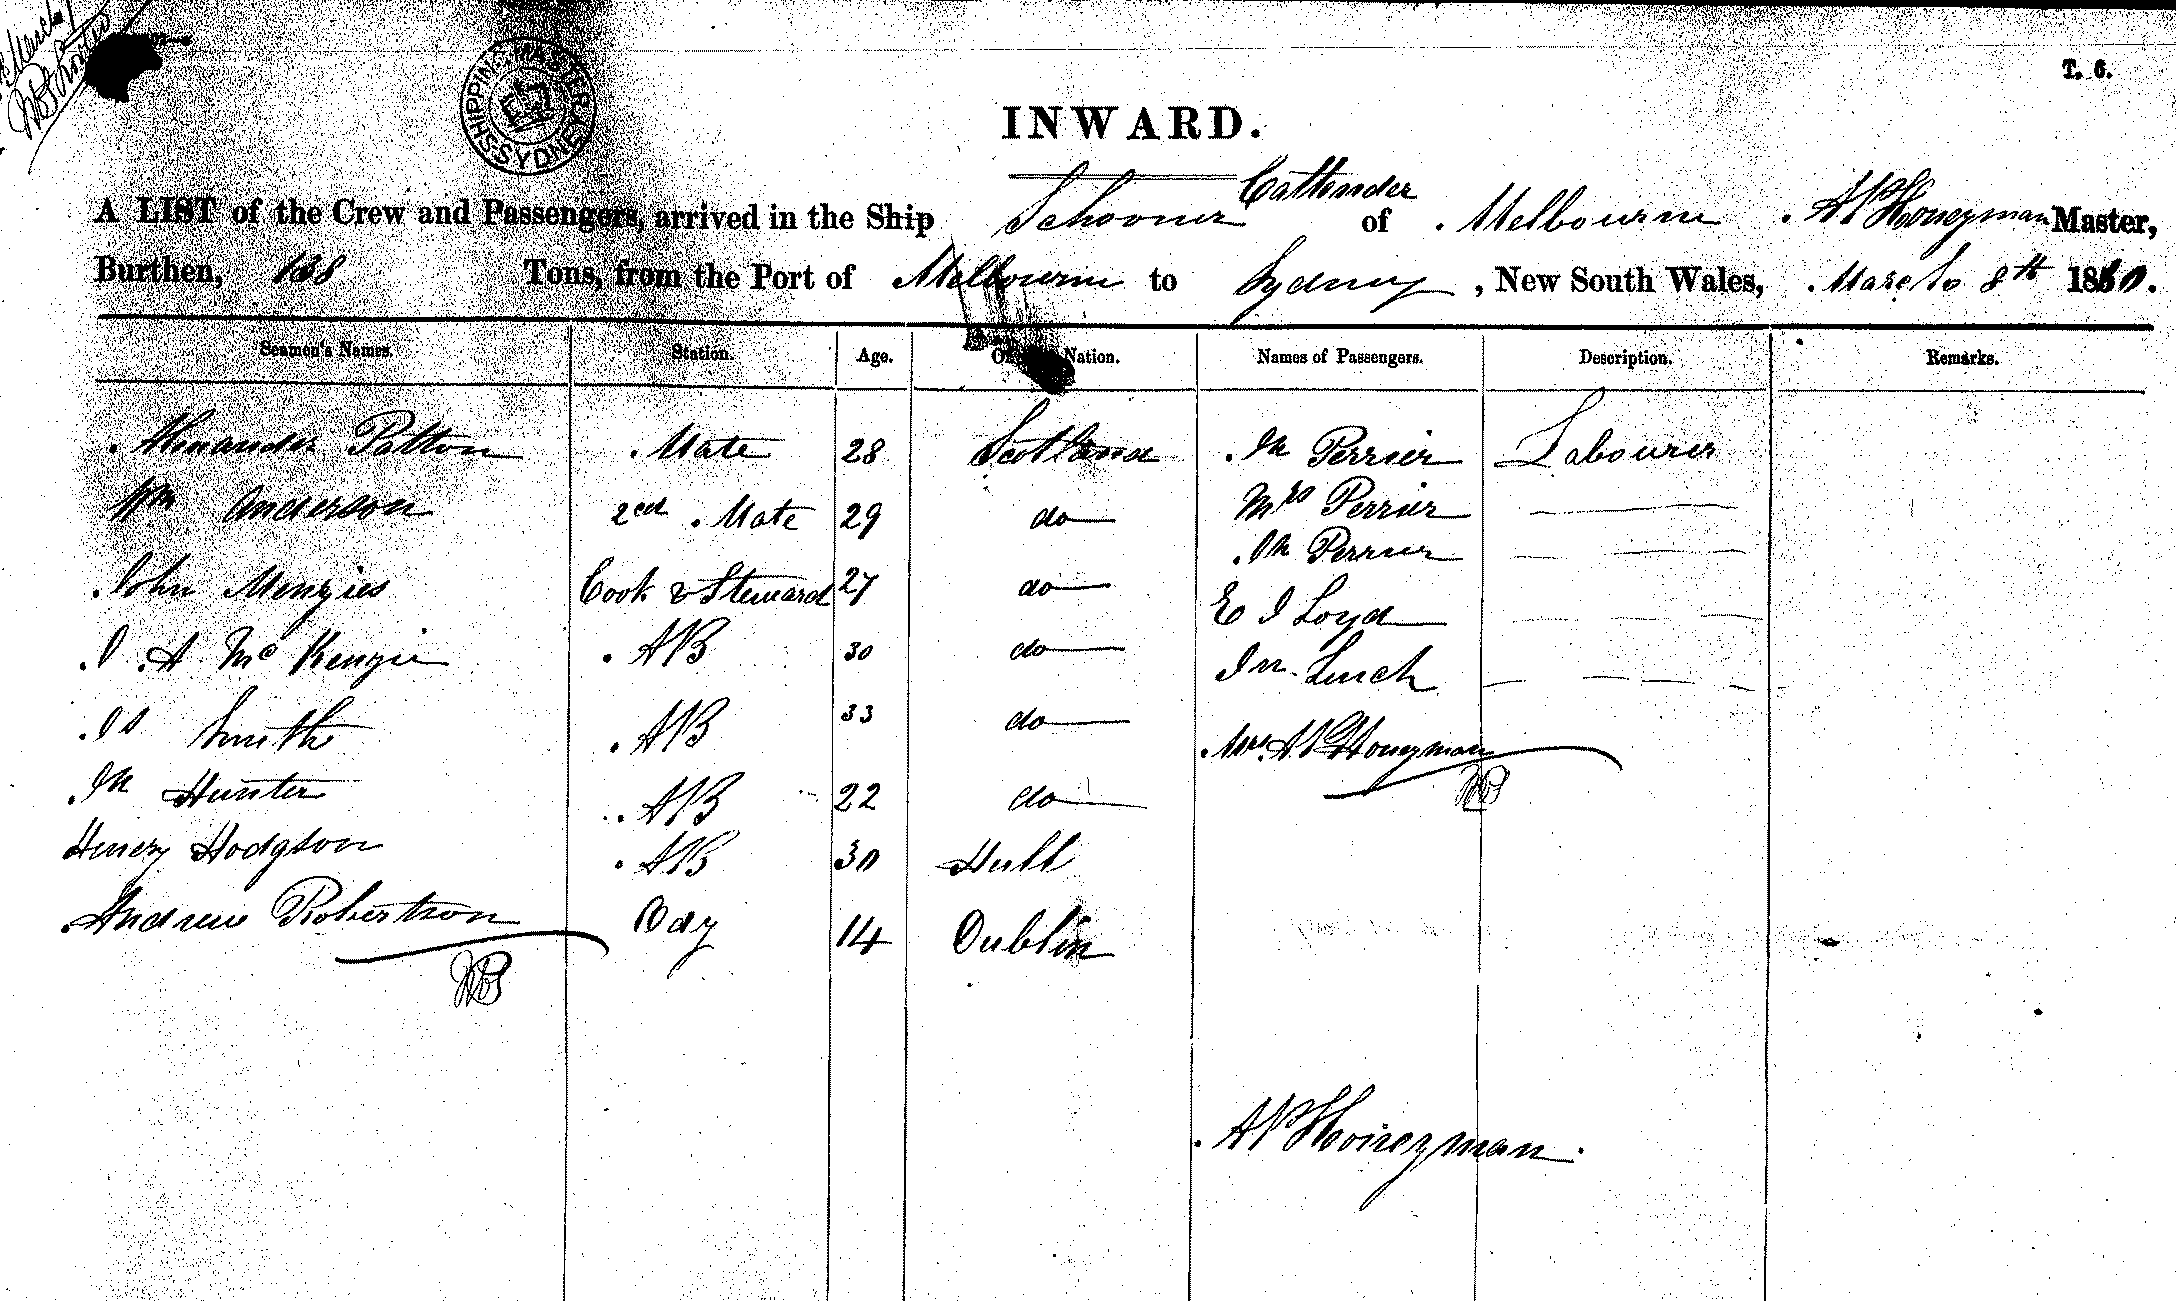 T. 6.
SHIPPING MASTER SYDNEY
INWARD.
A LIST of the Crew and Passengers, arrived in the Ship Schooner Cattender of Melbourne A P Honeyman Master,
Burthen, 138 Tons, from the Port of Melbourne to Sydney, New South Wales, March 8th 1860.
Seamen's Names. Station. Age. Nation. Names of Passengers. Description. Remarks.
Alexander Patton Mate 28 Scotland Jn Perrier Labourer
Wm Anderson 2ed Mate 29 do Mrs Perrier
Jn Perrier
John Menzies Cook & Steward 27 do E J Loyd
J A McKenzie AB 30 do Jn Linch
Js Smith AB 33 do Mrs A P Honeyman
Jn Hunter AB 22 do
Henery Hodgson AB 30 Hull
Andrew Robertson Boy 14 Dublin
A P Honeyman